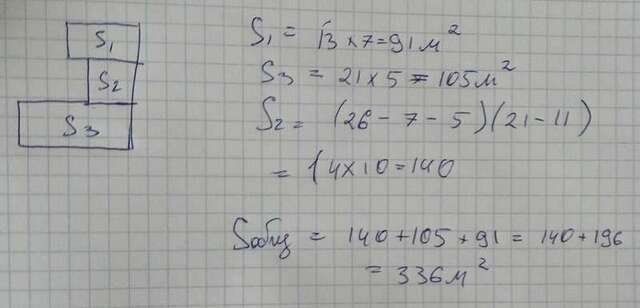 S₁
S₂
S₃
S₁ = 13 × 7 = 91 м²
S₃ = 21 × 5 = 105 м²
S₂ = (26 - 7 - 5)(21 - 11)
= 14 × 10 = 140
Sобщ = 140 + 105 + 91 = 140 + 196
= 336 м²